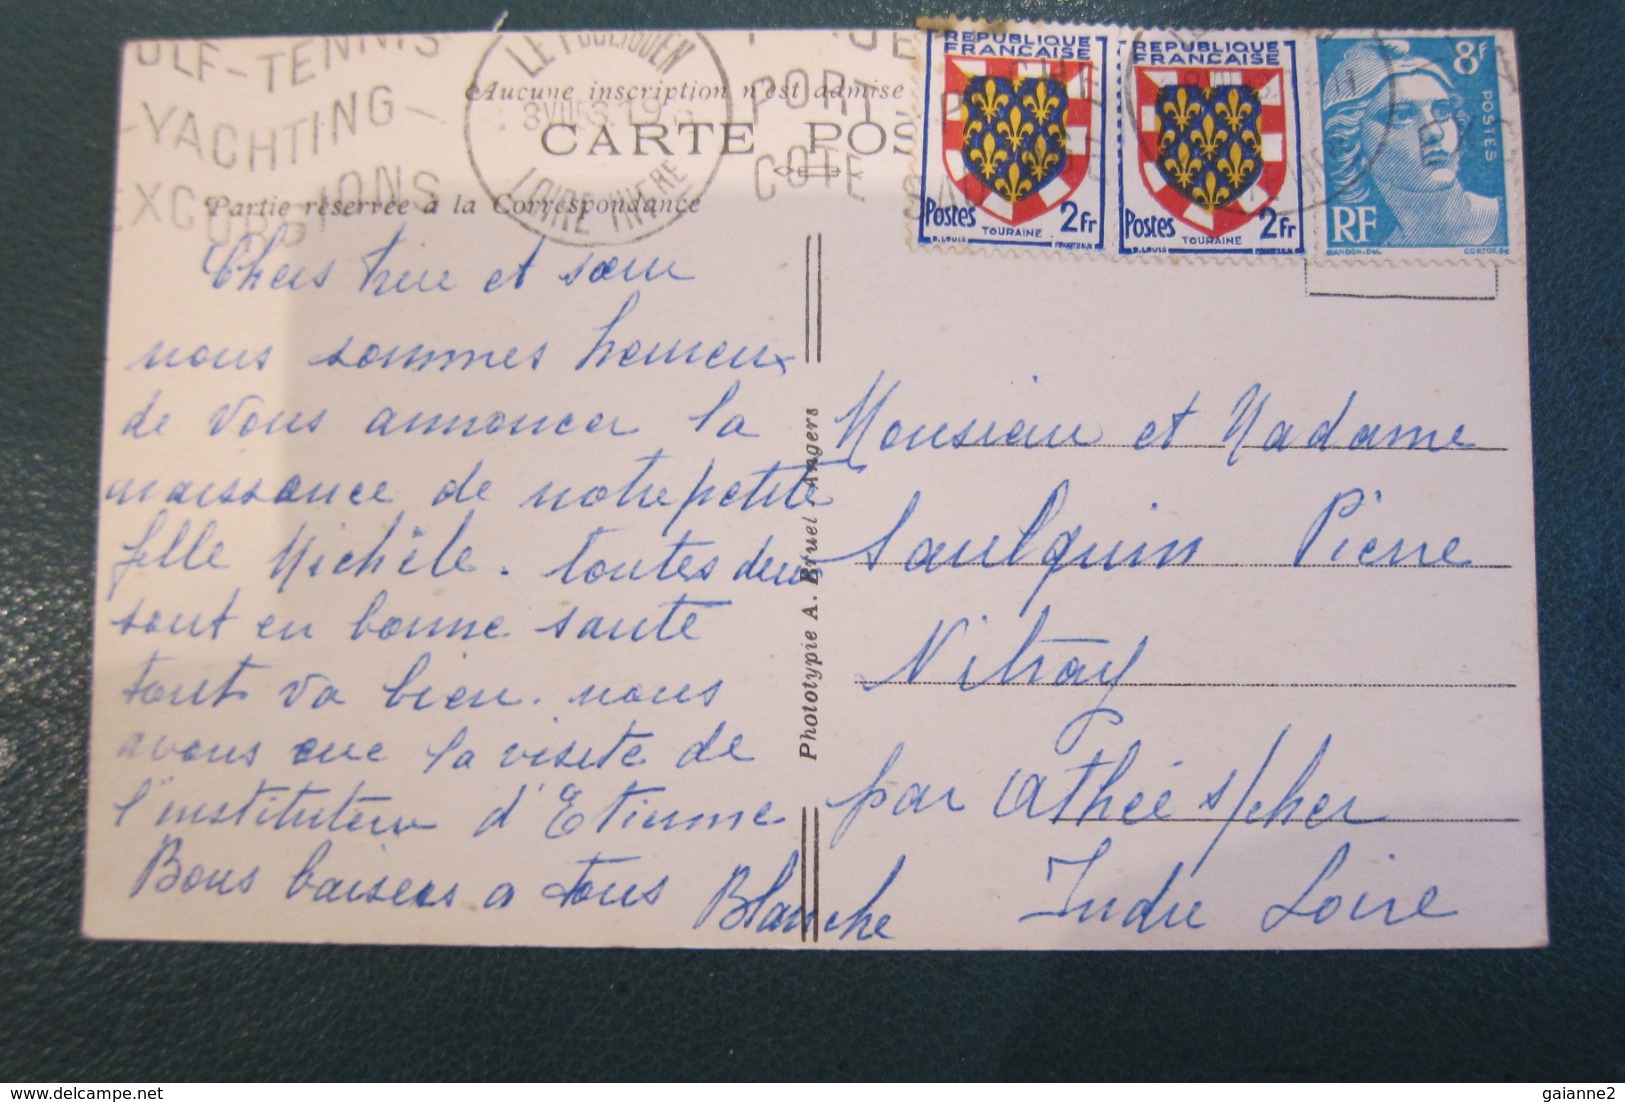 OLF-TENNIS
-YACHTING-
EXCURSIONS
LE POULIGUEN
LOIRE INFRE
PORT
COTE
Aucune inscription n'est admise
CARTE POS
Partie réservée à la Correspondance
REPUBLIQUE
FRANÇAISE
Postes 2Fr
TOURAINE
REPUBLIQUE
FRANÇAISE
Postes 2Fr
TOURAINE
8F
POSTES
RF
Chers frère et sœur
nous sommes heureux
de vous annoncer la
naissance de notre petite
fille Michèle. toutes deux
sont en bonne santé
tout va bien. nous
avons eue la visite de
l'instituteur d'Etienne
Bons baisers a tous Blanche
Phototypie A. Bruel Angers
Monsieur et Madame
Saulquin Pierre
Nitray
par Athée s/cher
Indre Loire
gaianne2